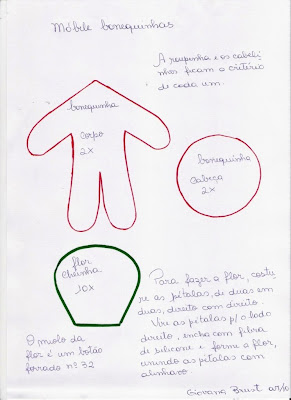 Móbile bonequinhas
A roupinha e os cabeli
nhos ficam a critério
de cada um.
bonequinha
corpo
2x
bonequinha
cabeça
2x
flor
cheinha
10x
Para fazer a flor, costu
re as pétalas, de duas em
duas, direito com direito.
Vire as pétalas p/ o lado
direito, encha com fibra
de silicone e forme a flor,
unindo as pétalas com
alinhavo
O miolo da
flor é um botão
forrado nº 32
Giovana Brust